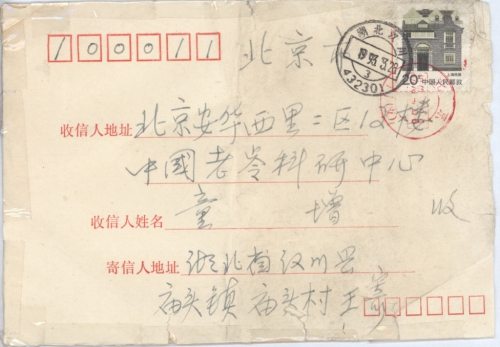 100011
北京
湖北汉川
432301
20分 中国人民邮政
收信人地址 北京安华西里二区12楼
中國老龄科研中心
收信人姓名 童增 收
寄信人地址 湖北省汉川县
庙头镇庙头村王家